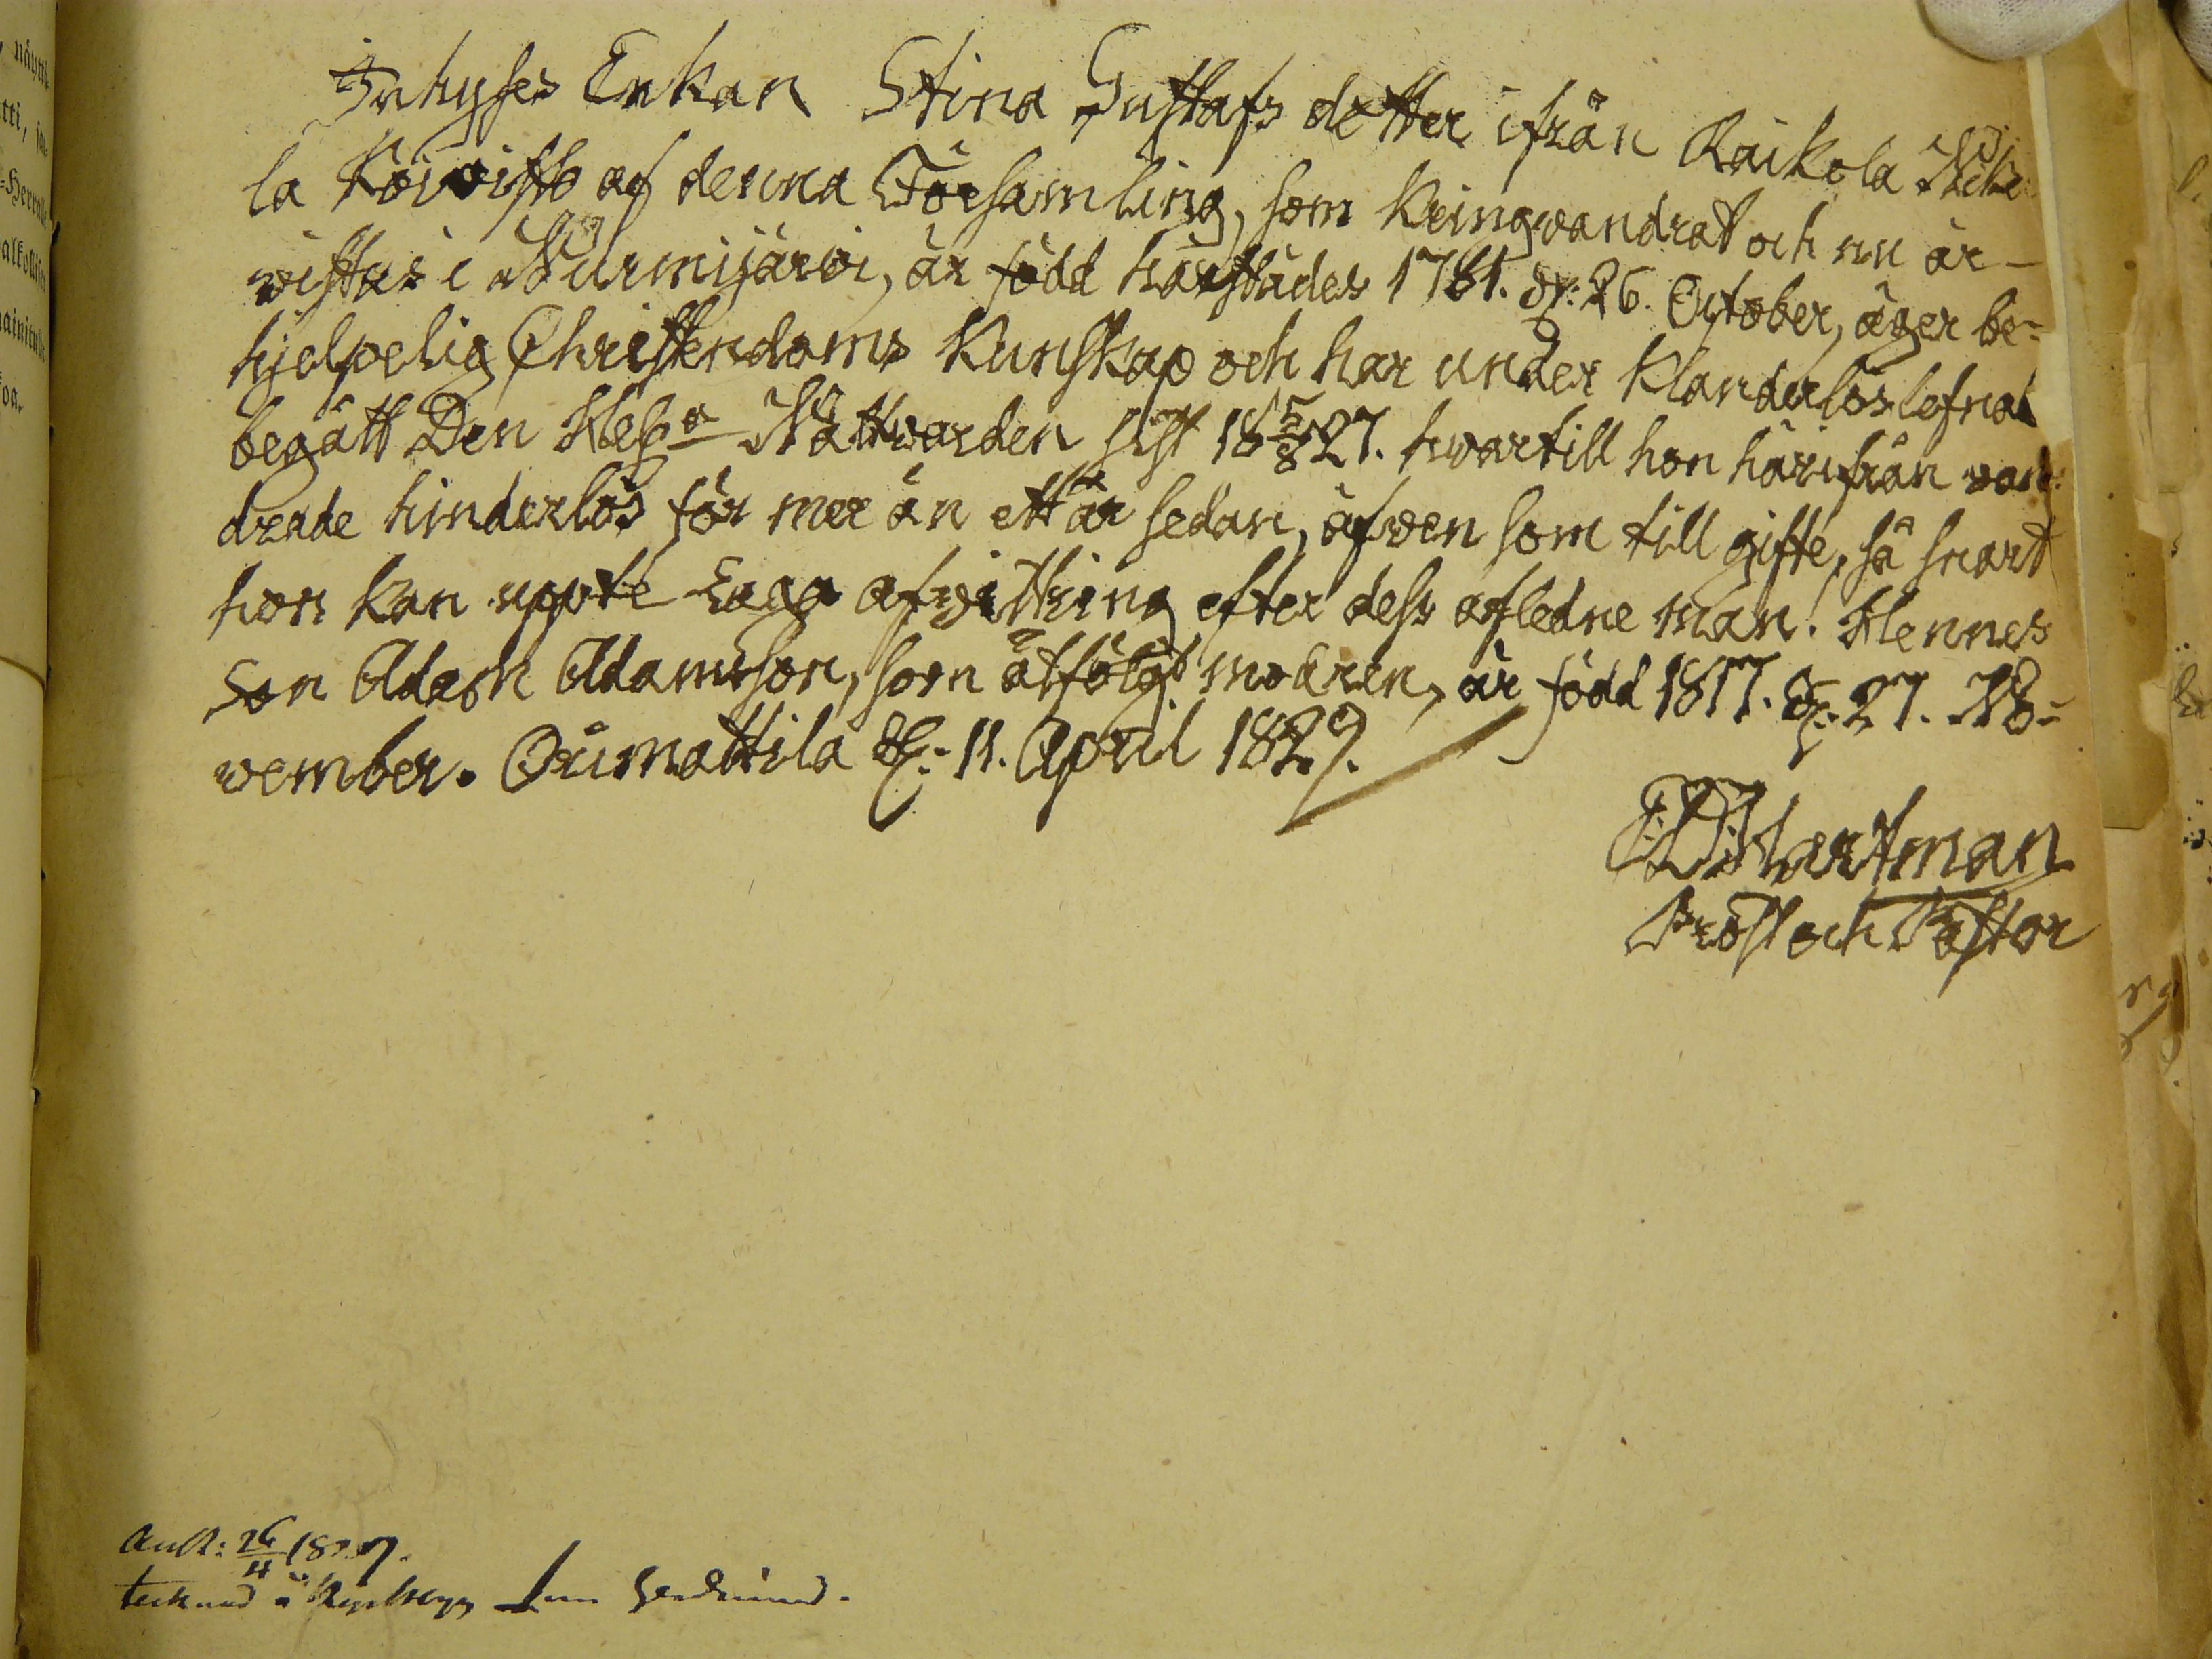 näytt
tti,
Herra
alkollisen
ainitulle
oa.
Inhyses Enkan Stina Gustafs dotter ifrån Raikola
la Koivisto af denna Församling, som Kringvandrat och nu är
vistas i Nurmijärvi, är född härstädes 1761. d: 26. October, äger be-
hjelpelig Christendoms Kunskap och har under Klanderlös lefnad
begått Den Hel:a Nattvarden sist 18 5/8 27. hvartill hon härifrån van-
drade hinderlös för mer än ett år sedan, äfven som till gifte, så snart
hon kan uppte Laga afvittring efter dess afledne man. Hennes
Son Adam Adamsson, som åtfölgt modren, är född 1817. d: 27. No-
vember. Orimattila d: 11. April 1829.
Hartman
Prost och Pastor
Ank: 26/4 1829.